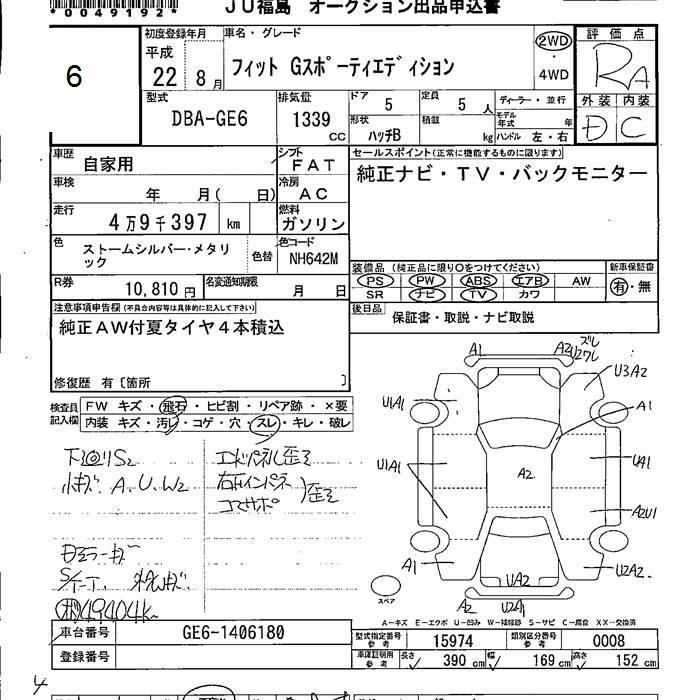 *0049192*
JU福島 オークション出品申込書
6
初度登録年月
平成
22年 8月
車名・グレード
フィット Gスポーティエディション
2WD
・4WD
評価点
RA
外装 内装
D C
型式
DBA-GE6
排気量
1339 CC
ドア
5
定員
5 人
形状
ハッチB
積載
kg
ディーラー・並行
モデル年式 年
ハンドル 左・右
車歴
自家用
シフト
FAT
車検
年 月( 日)
冷房
AC
走行
4万9千397 km
燃料
ガソリン
色
ストームシルバー・メタリ
ック
色替
色コード
NH642M
R券
10,810 円
名変通知期限
月 日
セールスポイント(正常に機能するものに限ります)
純正ナビ・TV・バックモニター
装備品 (純正品に限り○をつけてください)
PS PW ABS エアB AW
SR ナビ TV カワ
新車保証書
有・無
後日品
保証書・取説・ナビ取説
注意事項申告欄(不具合内容等は具体的に記入して下さい)
純正AW付夏タイヤ4本積込
修復歴 有〔箇所 〕
検査員
記入欄
FW キズ・飛石・ヒビ割・リペア跡・×要
内装 キズ・汚レ・コゲ・穴・スレ・キレ・破レ
下回りS2
小キズ A、U、W2
エンドパネル歪ミ
右リアインパネ
コアサポ
歪ミ
49404K
A1
A2U2
ズレ
ワレ
U3A2
U1A1
A1
U1A1
A2
UA1
A2U1
A1
UA2
U2A2
A2
U2A1
スペア
A-キズ E-エクボ U-凹み W-補修跡 S-サビ C-腐食 XX-交換済
車台番号
GE6-1406180
登録番号
型式指定番号
参考
15974
類別区分番号
参考
0008
車庫証明用
参考
長さ 390 cm 幅 169 cm 高さ 152 cm